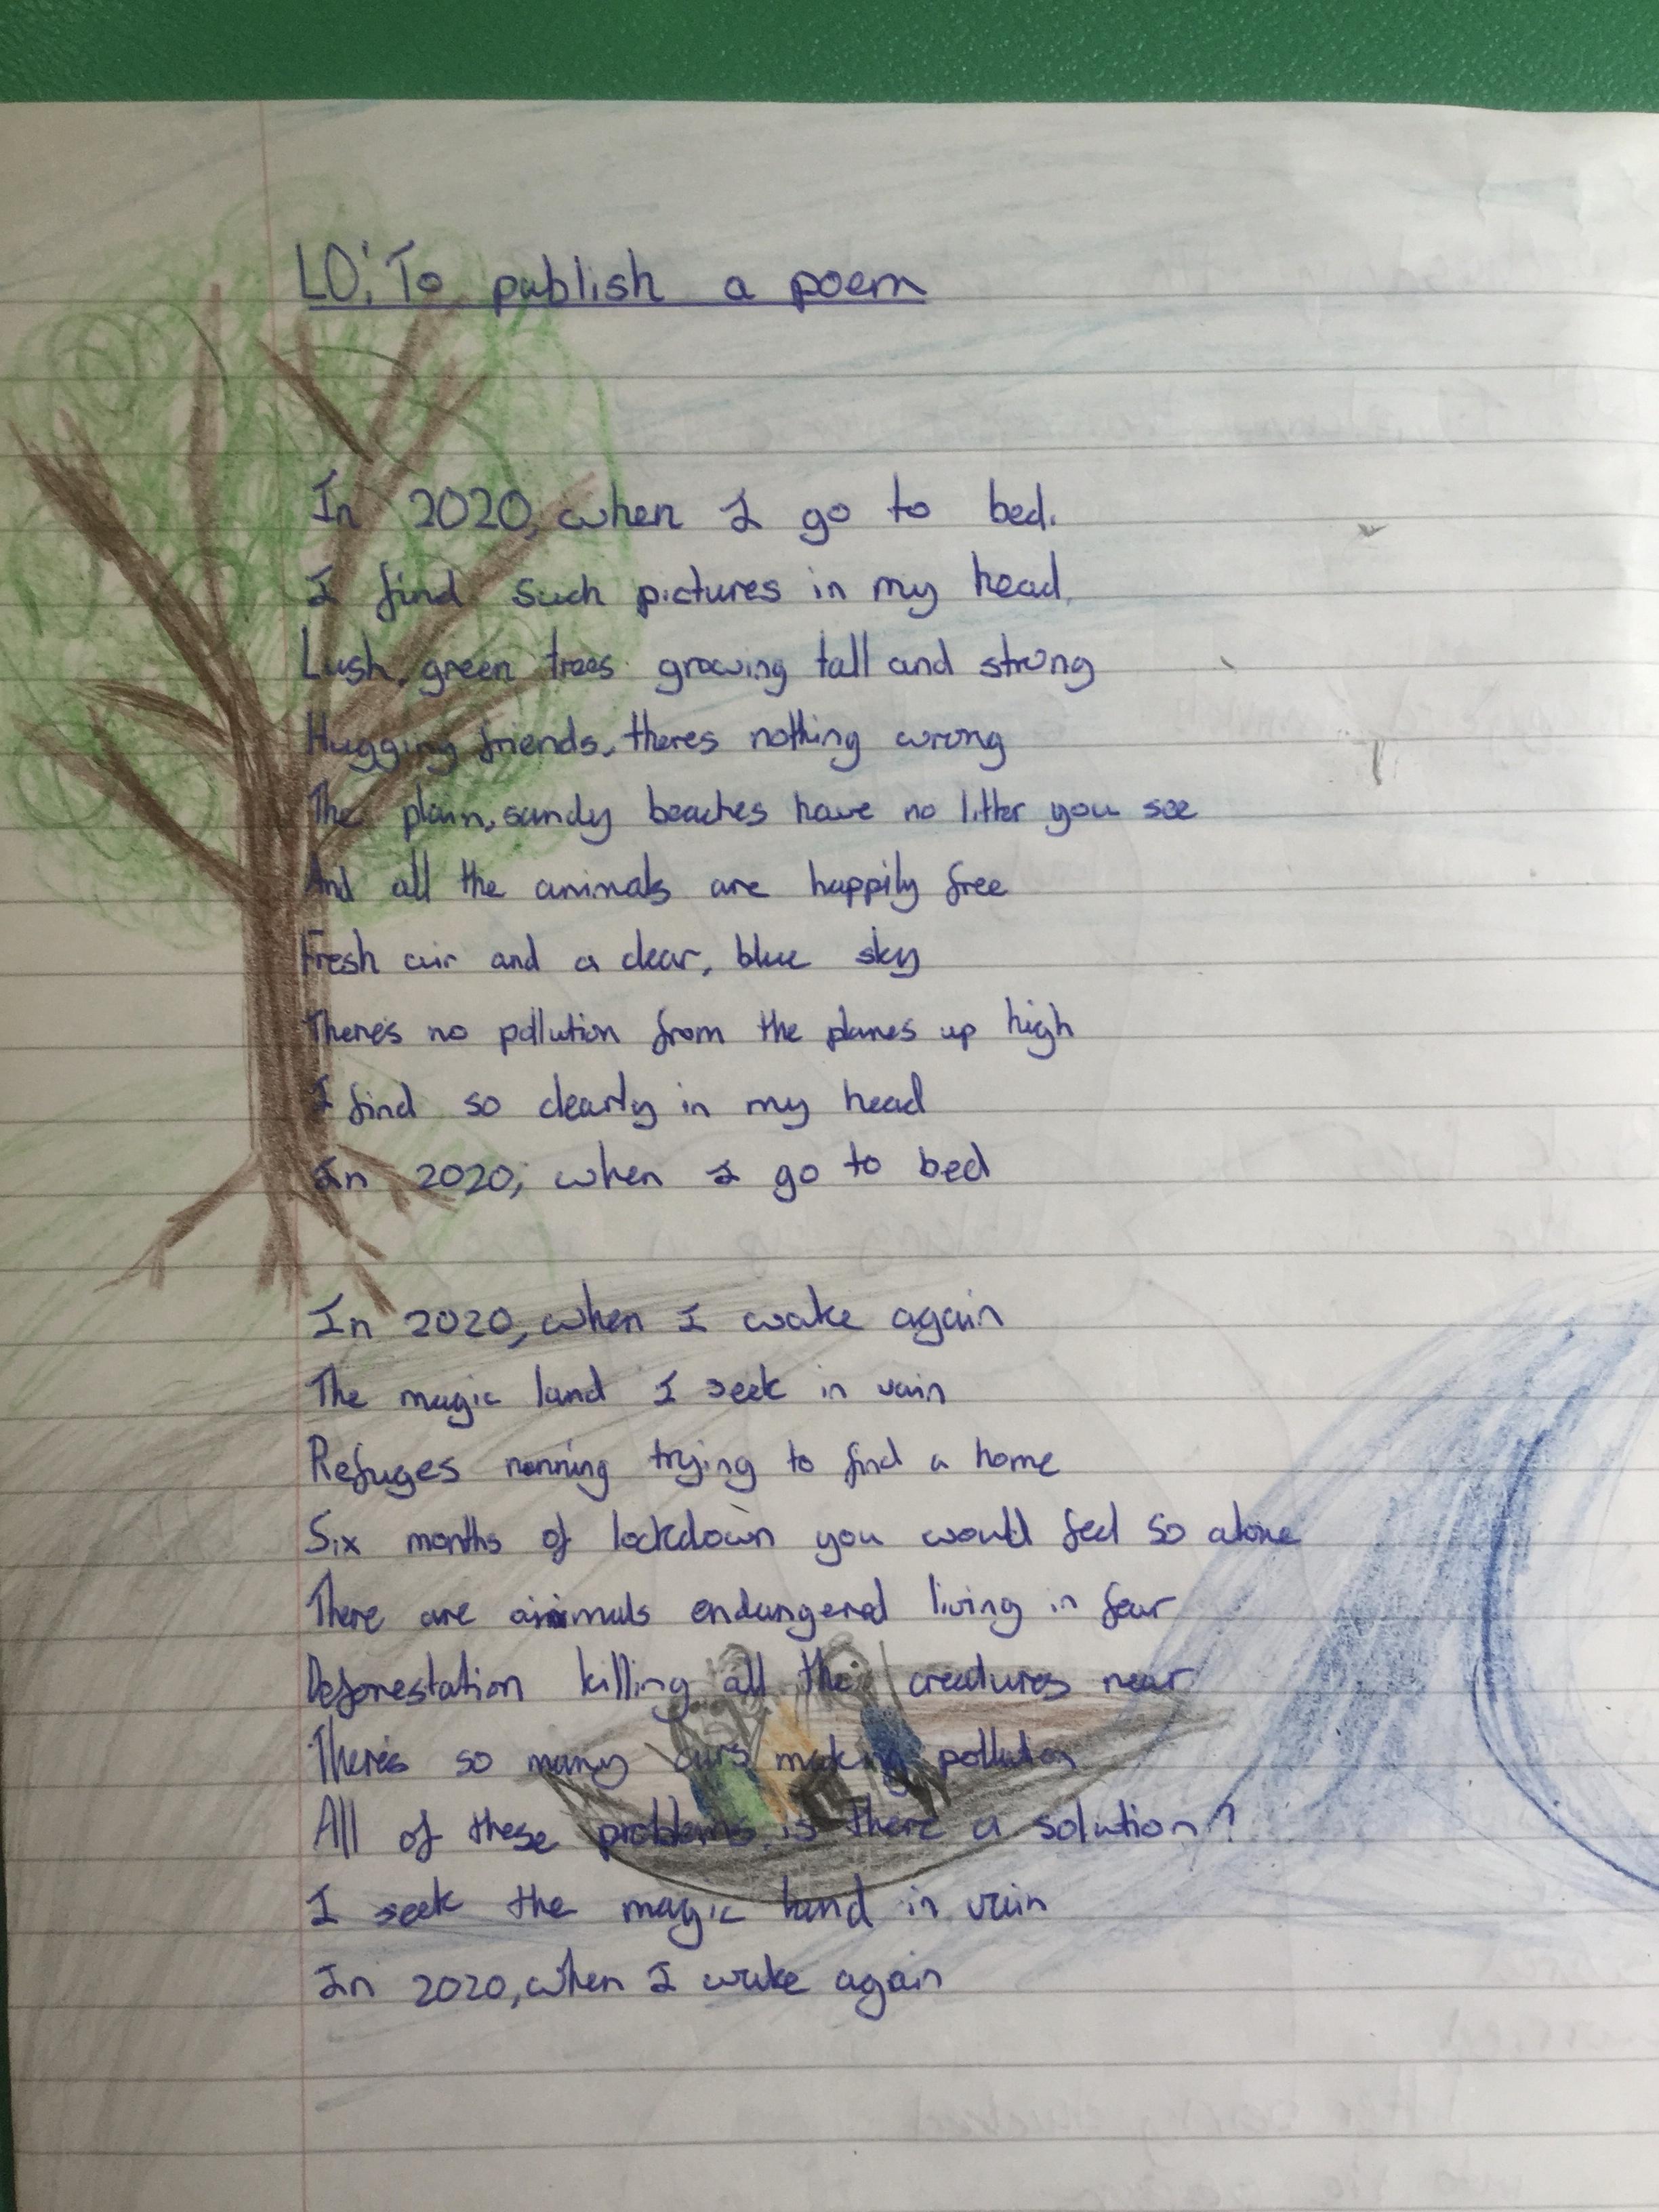 LO: To publish a poem
In 2020, when I go to bed.
I find such pictures in my head,
Lush, green trees growing tall and strong
Hugging friends, theres nothing wrong
The plain, sandy beaches have no litter you see
And all the animals are happily free
Fresh air and a clear, blue sky
There's no pollution from the planes up high
I find so clearly in my head
In 2020, when I go to bed
In 2020, when I wake again
The magic land I seek in vain
Refuges running trying to find a home
Six months of lockdown you would feel so alone
There are animals endangered living in fear
Deforestation killing all the creatures near
There's so many cars making pollution
All of these problems, is there a solution?
I seek the magic land in vain
In 2020, when I wake again